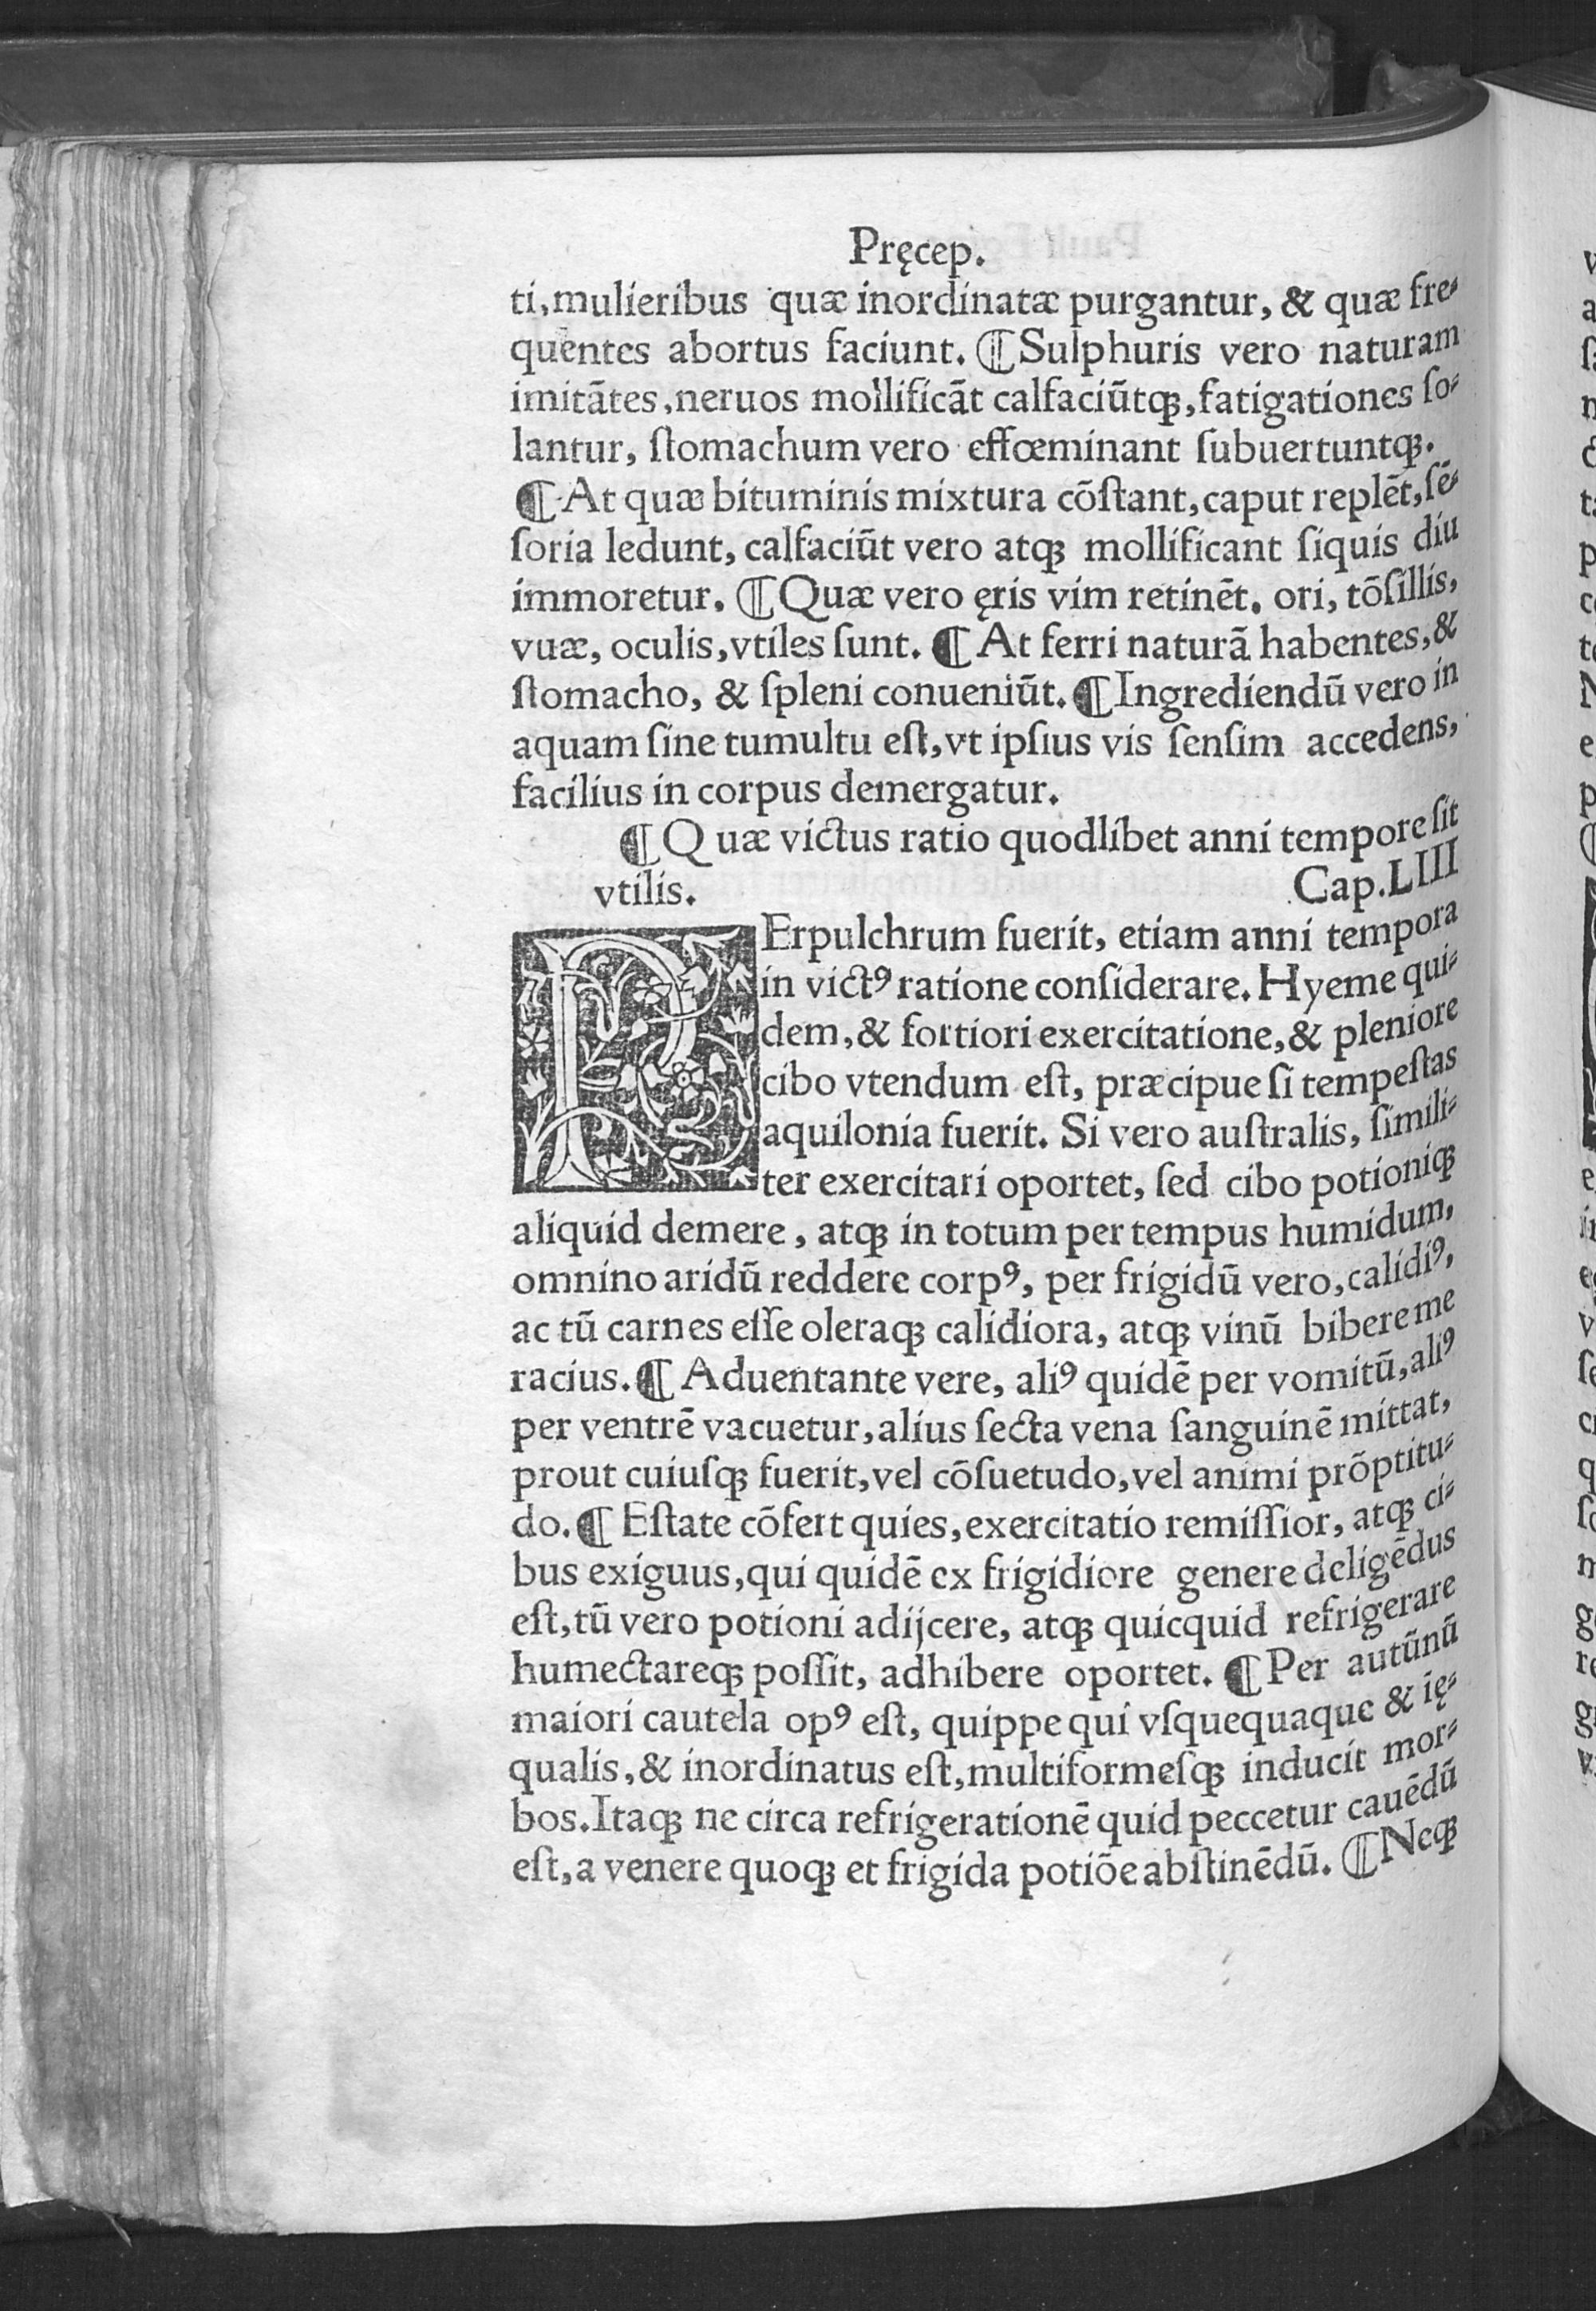 Pręcep.
ti,mulieribus quæ inordinatæ purgantur, & quæ fre⸗
quentes abortus faciunt. ¶Sulphuris vero naturam
imitātes,neruos mollificāt calfaciūtqꝫ,fatigationes ſo⸗
lantur, ſtomachum vero effœminant ſubuertuntqꝫ.
¶At quæ bituminis mixtura cōſtant,caput replēt,ſē⸗
ſoria ledunt, calfaciūt vero atqꝫ mollificant ſiquis diu
immoretur. ¶Quæ vero ęris vim retinēt. ori, tōſillis,
vuæ, oculis,vtiles ſunt. ¶At ferri naturā habentes,&
ſtomacho, & ſpleni conueniūt.¶Ingrediendū vero in
aquam ſine tumultu eſt,vt ipſius vis ſenſim accedens,
facilius in corpus demergatur.
¶Quæ victus ratio quodlibet anni tempore ſit
vtilis. Cap.LIII
PErpulchrum fuerit, etiam anni tempora
in victꝰ ratione conſiderare. Hyeme qui⸗
dem,& fortiori exercitatione,& pleniore
cibo vtendum eſt, præcipue ſi tempeſtas
aquilonia fuerit. Si vero auſtralis, ſimili⸗
ter exercitari oportet, ſed cibo potioniqꝫ
aliquid demere, atqꝫ in totum per tempus humidum,
omnino aridū reddere corpꝰ, per frigidū vero,calidiꝰ,
ac tū carnes eſſe oleraqꝫ calidiora, atqꝫ vinū bibere me
racius.¶Aduentante vere, aliꝰ quidē per vomitū,aliꝰ
per ventrē vacuetur,alius ſecta vena ſanguinē mittat,
prout cuiuſqꝫ fuerit,vel cōſuetudo,vel animi prōptitu⸗
do.¶Eſtate cōfert quies,exercitatio remiſſior, atqꝫ ci⸗
bus exiguus,qui quidē ex frigidiore genere deligēdus
eſt,tū vero potioni adijcere, atqꝫ quicquid refrigerare
humectareqꝫ poſſit, adhibere oportet. ¶Per autūnū
maiori cautela opꝰ eſt, quippe qui vſquequaque & ię⸗
qualis,& inordinatus eſt,multiformeſqꝫ inducit mor⸗
bos.Itaqꝫ ne circa refrigerationē quid peccetur cauēdū
eſt,a venere quoqꝫ et frigida potiōe abſtinēdū. ¶Neqꝫ